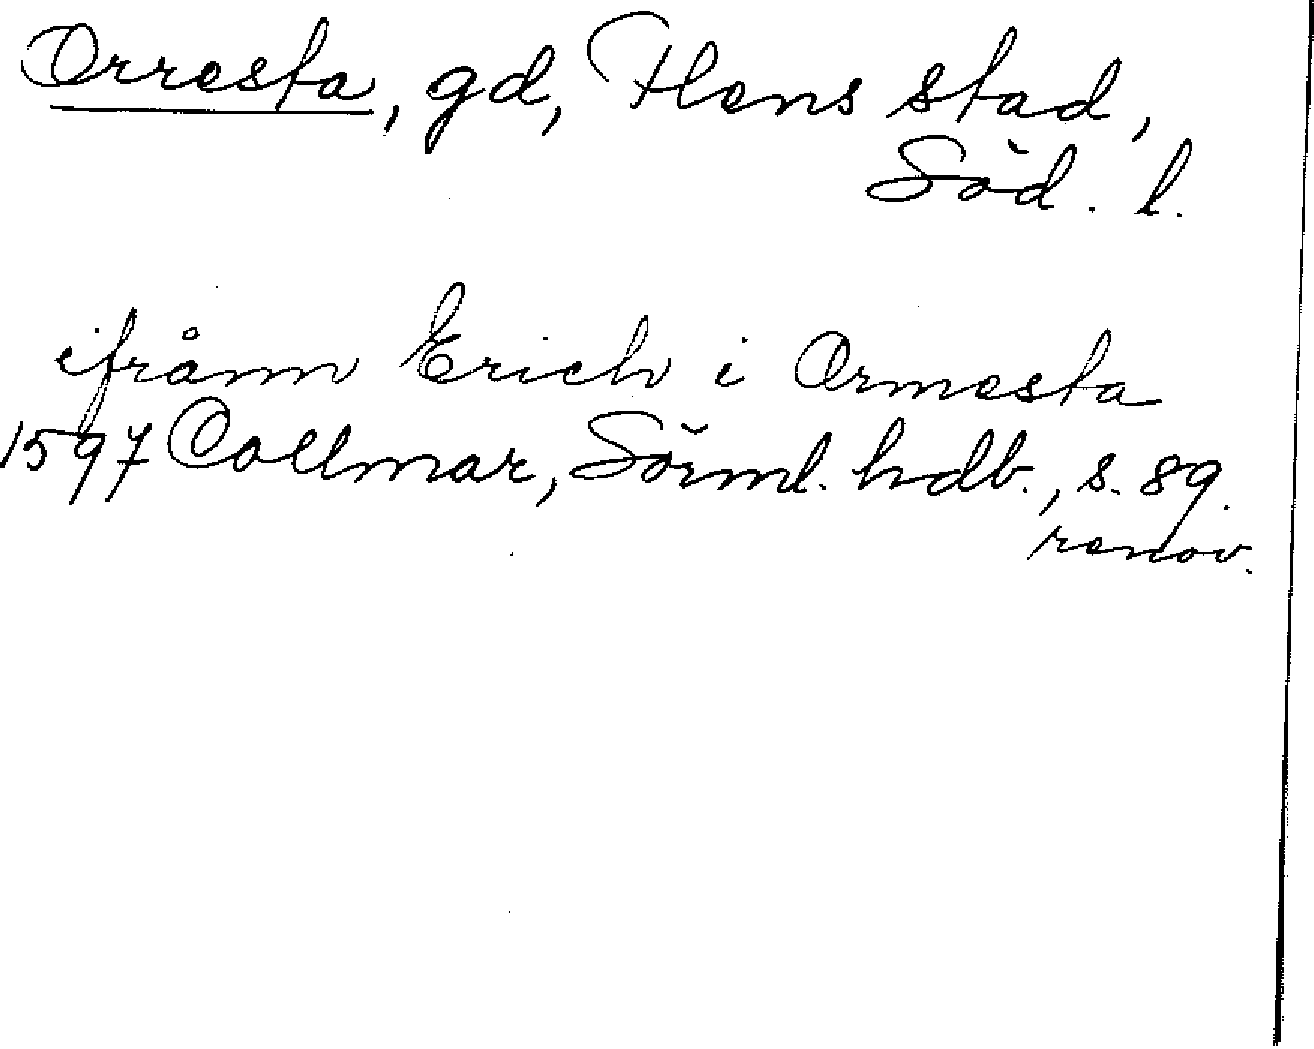 Orresta, gd, Flens stad,
Söd. l.
ifrånn Erich i Ormesta
1597 Collmar, Sörml. hdb., s. 89.
renov.